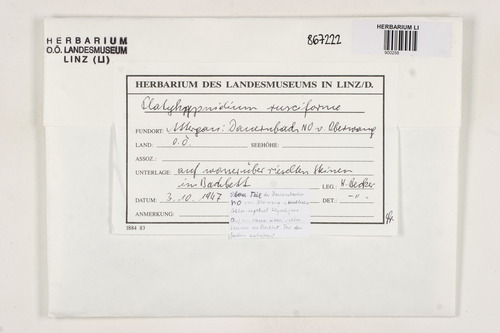 HERBARIUM
O.Ö. LANDESMUSEUM
LINZ (LI)
867222
HERBARIUM LI
HERBARIUM DES LANDESMUSEUMS IN LINZ/D.
Platyhypnidium rusciforme
FUNDORT: Attergau: Dauernbach NO v. Oberwang
LAND: O.Ö. SEEHÖHE:
ASSOZ.:
UNTERLAGE: auf wasserüberrieselten Steinen
im Bachbett LEG.: H. Becker
DATUM: 3. 10. 1947 DET.: -"-
ANMERKUNG:
NO
1884 83